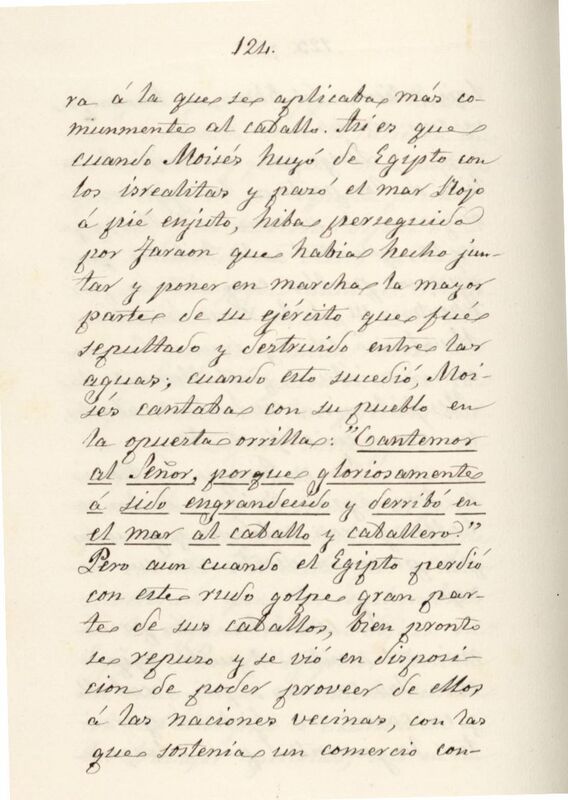 124.
ra á la que se aplicaba más co-
munmente al caballo. Asi es que
cuando Moisés huyó de Egipto con
los isrealitas y pasó el mar Rojo
á pié enjuto, hiba perseguido
por Faraon que habia hecho jun-
tar y poner en marcha la mayor
parte de su ejército que fué
sepultado y destruido entre las
aguas; cuando esto sucedió, Moi-
sés cantaba con su pueblo en
la opuesta orrilla: "Cantemos
al Señor, porque gloriosamente
á sido engrandecido y derribó en
el mar al caballo y caballero."
Pero aun cuando el Egipto perdió
con este rudo golpe gran par-
te de sus caballos, bien pronto
se repuso y se vió en disposi-
cion de poder proveer de ellos
á las naciones vecinas, con las
que sostenia un comercio con-